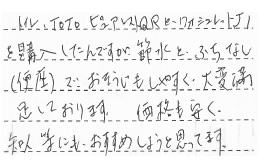 トイレ、TOTO ピュアレストQRとウォシュレットJ1
を購入したんですが 節水と、ふちなし
(便座)で おそうじもしやすく、大変満
足しております。 価格も安く、
知人等にも、おすすめしようと思ってます。